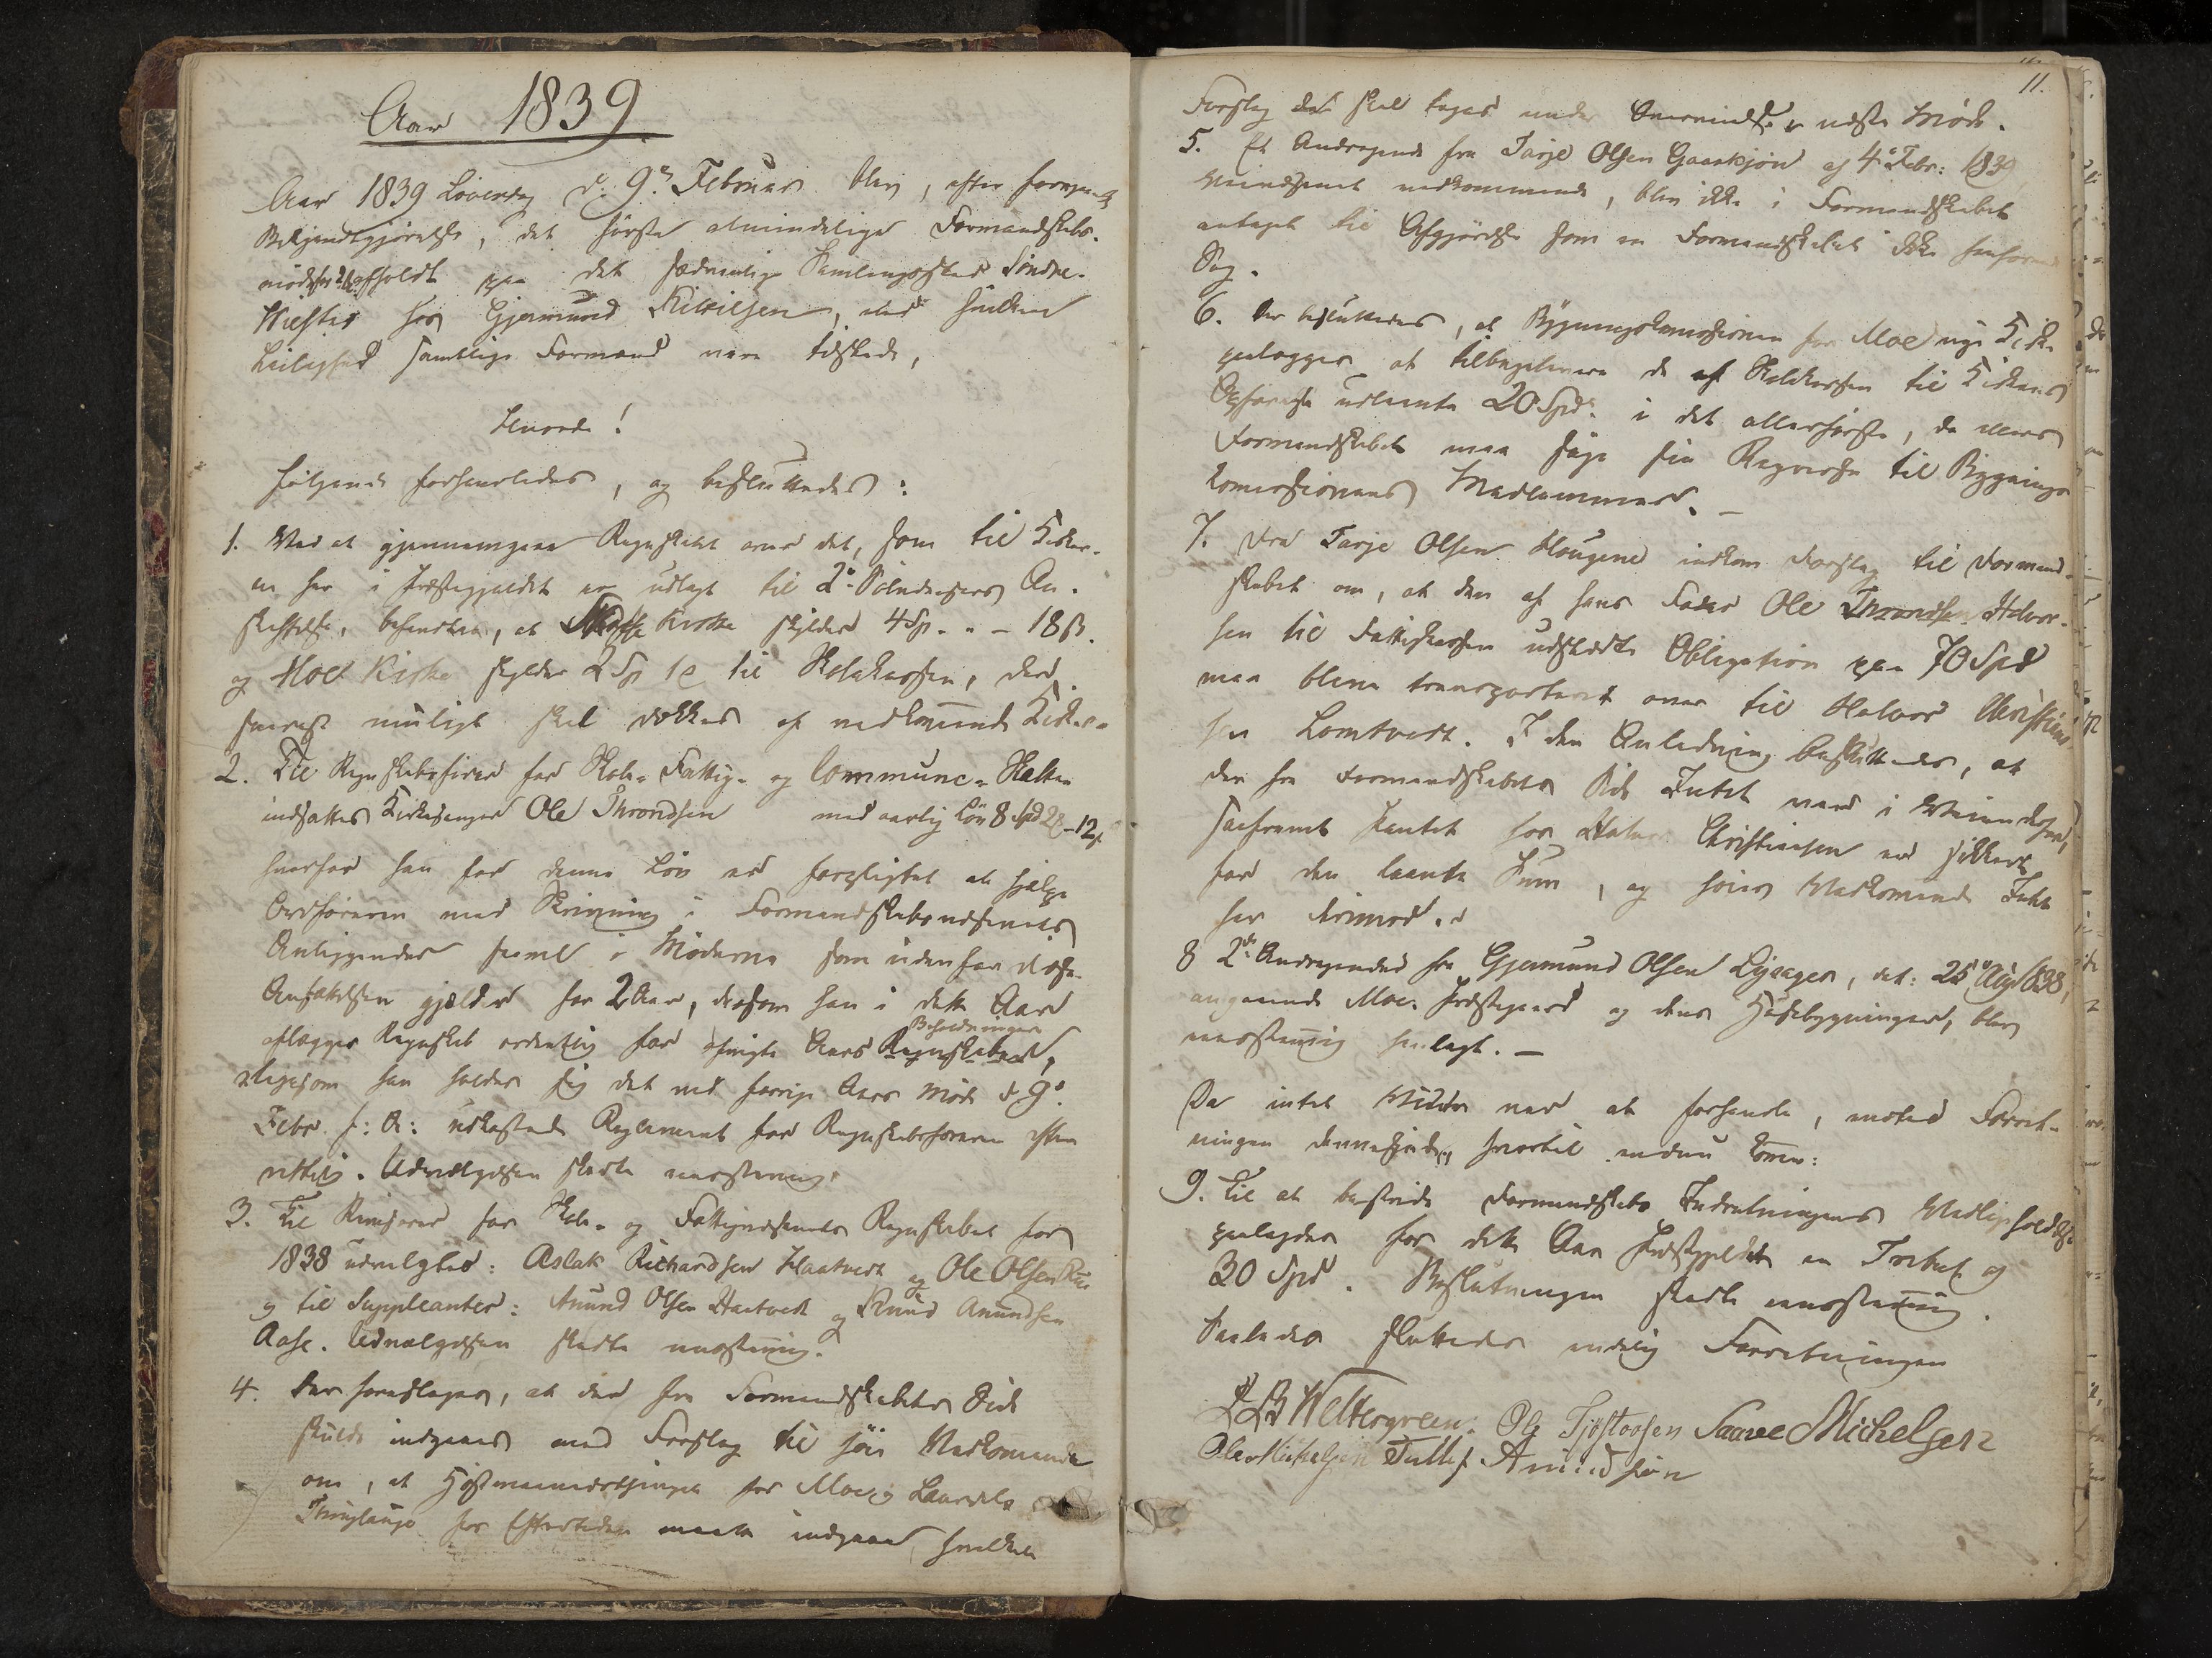 Aar 1839
Aar 1839 Löverdag d. 9de Februar blev, efter foregaaende
Bekjendtgjörelse, det förste almindelige Formandskabs-
möde afholdt paa det sædvanlige Samlingssted Söndre-
hos Gjermund Kittilsen, ved hvilken
Leilighed samtlige Formænd vare tilstede,
Hvorda!
fölgende forhandledes, og besluttedes:
1. Ved at gjennemgaae Regnskabet over det, som til Kirker-
ne her i Præstegjeldet er udlagt til 2de Anskaffelse
befandtes, at Kirke skylder 4 Sp. - 18 ß.
og Moe Kirke skylder 2 Sp til Skolekassen, der
snarest muligt skal dækkes af vedkommende Kirker.
2. Til Regnskabsförer for Skole- Fattig- og Commune-Kassen
indsattes Kirkesanger Ole Throndsen med aarlig Lön 8 Spd 2 - 12 ß
hvorfor han for denne Lön er forpligtet at hjelpe
Ordföreren med Skrivning i Formandskabsvæsenets
Anliggender saavel i Möderne som udenfor disse.
Ansættelsen gjælder for 2 Aar, dersom han i dette Aar
aflægger Regnskab ordentlig for afvigte Aars Regnskaber, Beholdninger
ligesom han holder sig det ved forrige Aars Möde d 9de
Febr. f: A: udkastede Reglement for Regnskabsföreren efter-
rettelig. Udvælgelsen skede eenstemmig.
3. Til Revisorer for Skole- og Fattigvæsenets Regnskabet for
1838 udvalgtes: Aslak Richardsen Haatvedt og Ole Olsen
og til Suppleanter: Anund Olsen Haatvedt og Knud Anundsen
Aase. Udvælgelsen skede eenstemmig.
4. Der foresloges, at der fra Formandskabets Side
skulde indgaaes med Forslag til höie Vedkommende
om, at for Moe og Laurdals
Thinglauge for Eftertiden maatte indgaae, hvilket
11.
Forslag skal tages under Overveielse i næste Möde.
5. Et Andragende fra Tarje Olsen Gaaskjön af 4de Febr: 1839
Veivæsenet vedkommende, blev ikke i Formandskabet
antaget til Afgjörelse som en Formandskabet ikke henhörende
Sag.
6. Der besluttedes, at Bygningskommissionen for Moe nye Kirke
paalægges at tilbagelevere de af Skolekassen til Kirkens
Opförelse udlaante 20 Spd. i det allerförste, da ellers
Formandskabet maa söge sin Regres til Bygnings
Kommissionens Medlemmer.
7. Fra Tarje Olsen Hougene indkom Forslag til Formand-
skabet om, at den af hans Fader Ole Halvor-
sen til Fattigkassen udstædte Obligation paa 70 Spd
maa blive transporteret over til Halvor Christian-
sen Lomtvedt. I den Anledning besluttedes, at
der fra Formandskabets Side Intet var i Veien derfor,
saafremt Pantet hos Halvor Christiansen er sikkert
for den laante Sum, og höie Vedkommende Intet
har derimod.
8 2de Andragender fra Gjermund Olsen, dat: 25de Aug 1838,
angaaende Moe Præstegaard og dens Huusbygninger, blev
eenstemmig henlagt.
Da intet videre var at forhandle, endtes Forret-
ningen dennesinde, hvortil endnu kommer:
9. Til at bestride Formandskabs Indretningens Vedligeholdelse
paalagdes for dette Aar Præstegjeldet en
30 Spd. Beslutningen skede eenstemmig.
Saaledes sluttedes endelig Forretningen
Weltergreen. Ole Tjöstolfsen Saave Michelsen
Ole Michelsen Tallef Anundsön